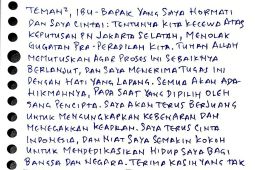 TEMAN², IBU-BAPAK YANG SAYA HORMATI
DAN SAYA CINTAI: TENTUNYA KITA KECEWA ATAS
KEPUTUSAN PN JAKARTA SELATAN, MENOLAK
GUGATAN PRA-PERADILAN KITA. TUHAN ALLAH
MEMUTUSKAN AGAR PROSES INI SEBAIKNYA
BERLANJUT, DAN SAYA MENERIMA TUGAS INI
DENGAN HATI YANG LAPANG. SEMUA AKAN ADA
HIKMAHNYA, PADA SAAT YANG DIPILIH OLEH
SANG PENCIPTA. SAYA AKAN TERUS BERJUANG
UNTUK MENGUNGKAPKAN KEBENARAN DAN
MENEGAKKAN KEADILAN. SAYA TERUS CINTA
INDONESIA, DAN NIAT SAYA SEMAKIN KOKOH
UNTUK MENDEDIKASIKAN HIDUP SAYA BAGI
BANGSA DAN NEGARA. TERIMA KASIH YANG TAK